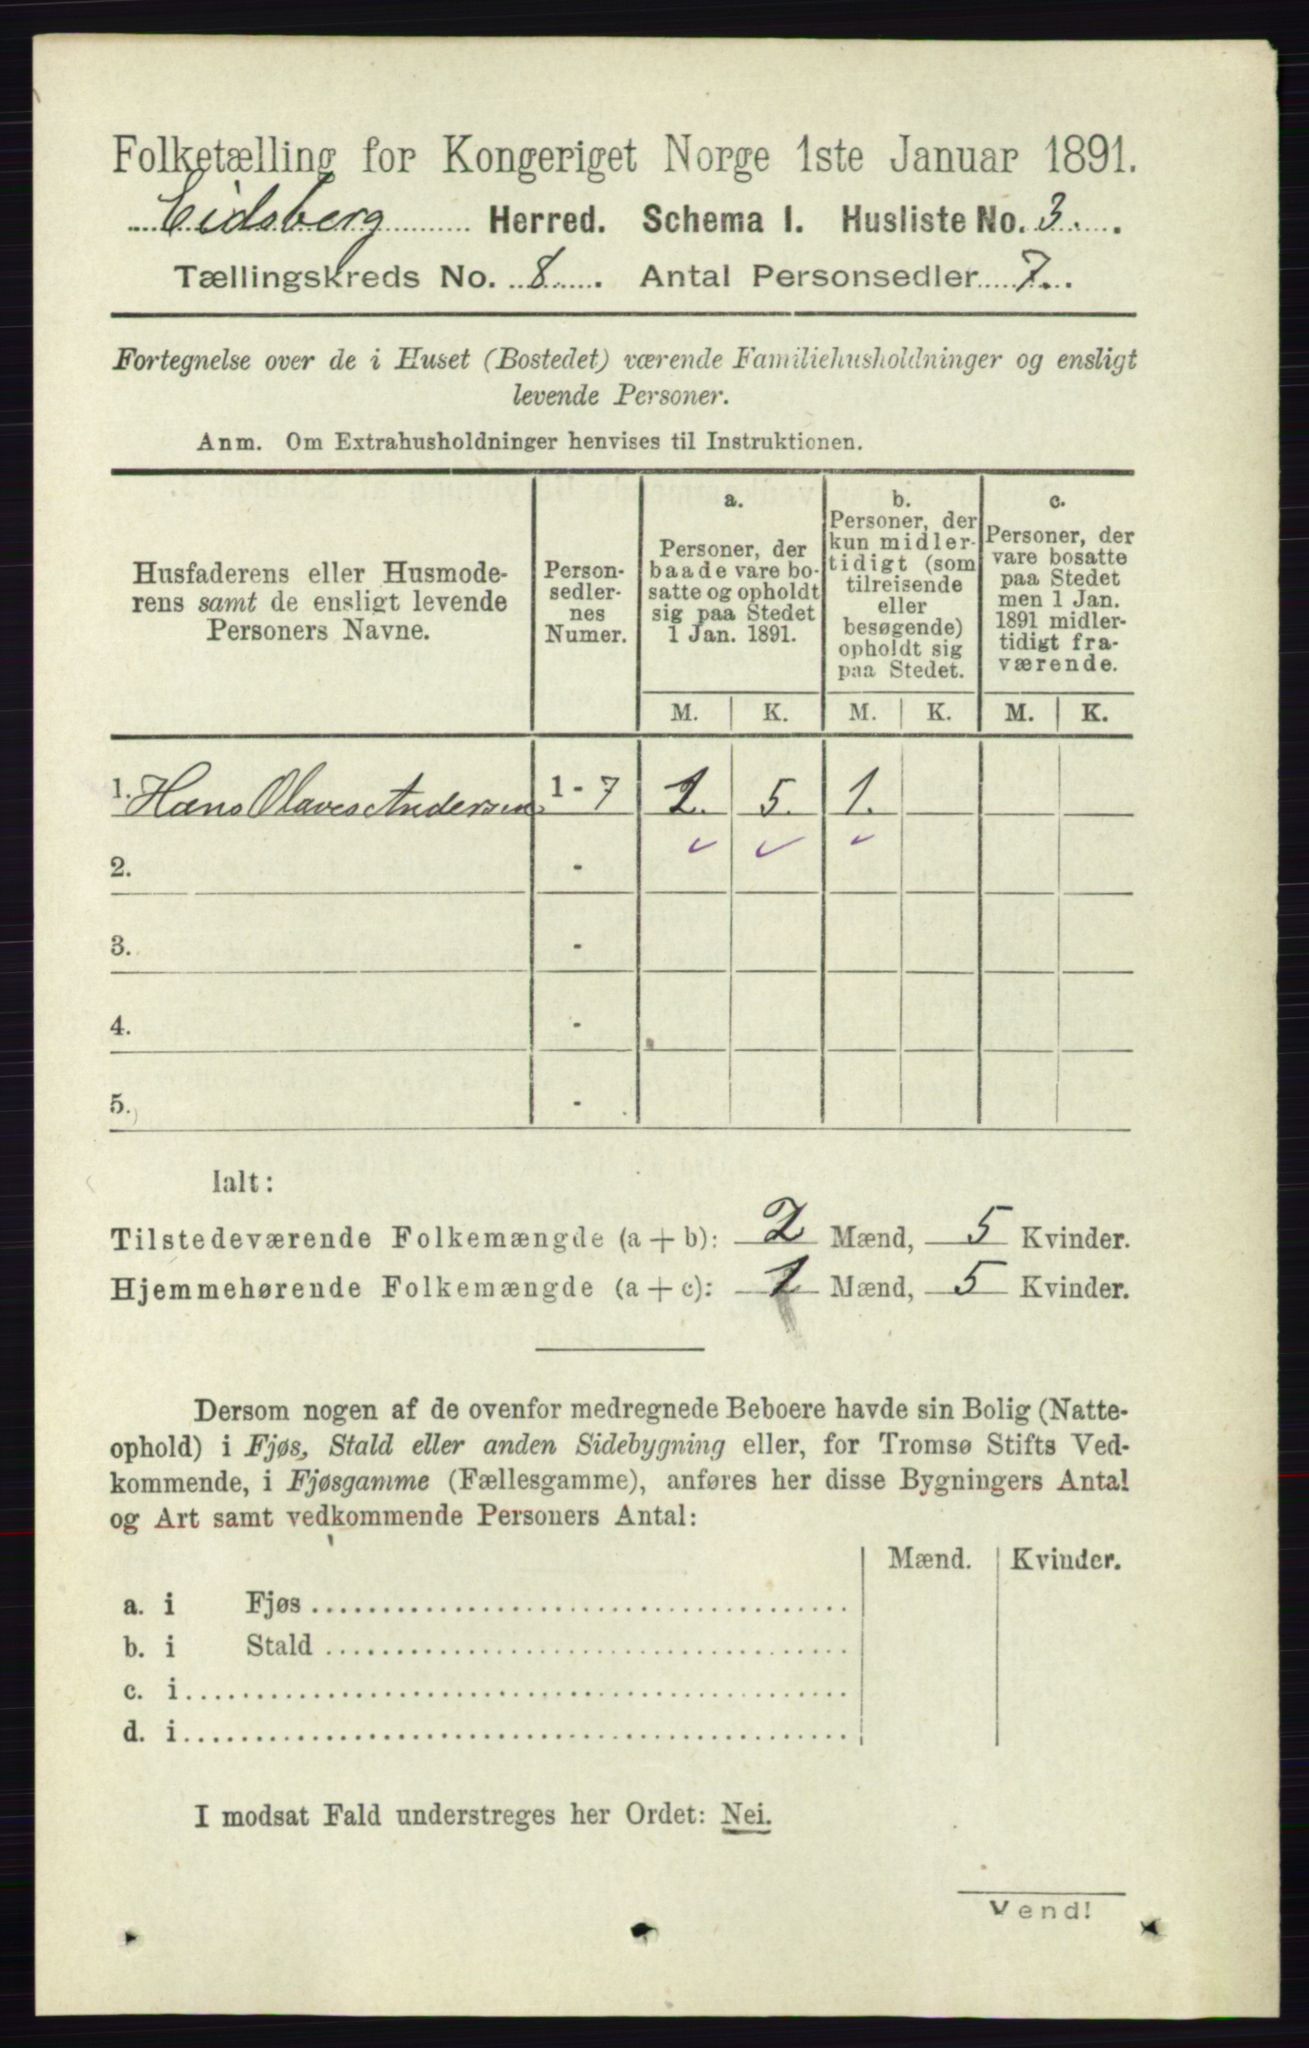 Folketælling for Kongeriget Norge 1ste Januar 1891.
Eidsberg Herred. Schema I. Husliste No. 3.
Tællingskreds No. 8. Antal Personsedler 7.
Fortegnelse over de i Huset (Bostedet) værende Familiehusholdninger og ensligt
levende Personer.
Anm. Om Extrahusholdninger henvises til Instruktionen.
Husfaderens eller Husmode-
rens samt de ensligt levende
Personers Navne.
Person-
sedler-
nes
Numer.
a.
Personer, der
baade vare bo-
satte og opholdt
sig paa Stedet
1 Jan. 1891.
b.
Personer, der
kun midler-
tidigt (som
tilreisende
eller
besøgende)
opholdt sig
paa Stedet.
c.
Personer, der
vare bosatte
paa Stedet
men 1 Jan.
1891 midler-
tidigt fra-
værende.
M. K. M. K. M. K.
1. Hans Olaves Andersen 1 - 7 1. 5. 1.
2. -
3. -
4. -
5. -
Ialt:
Tilstedeværende Folkemængde (a + b): 2 Mænd, 5 Kvinder.
Hjemmehørende Folkemængde (a + c): 1 Mænd, 5 Kvinder.
Dersom nogen af de ovenfor medregnede Beboere havde sin Bolig (Natte-
ophold) i Fjøs, Stald eller anden Sidebygning eller, for Tromsø Stifts Ved-
kommende, i Fjøsgamme (Fællesgamme), anføres her disse Bygningers Antal
og Art samt vedkommende Personers Antal:
Mænd. Kvinder.
a. i Fjøs
b. i Stald
c. i
d. i
I modsat Fald understreges her Ordet: Nei.
Vend!